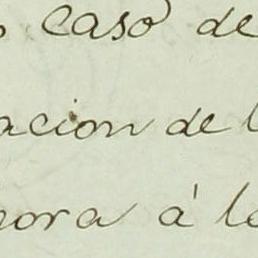 caso de
acion de l
ora á lo